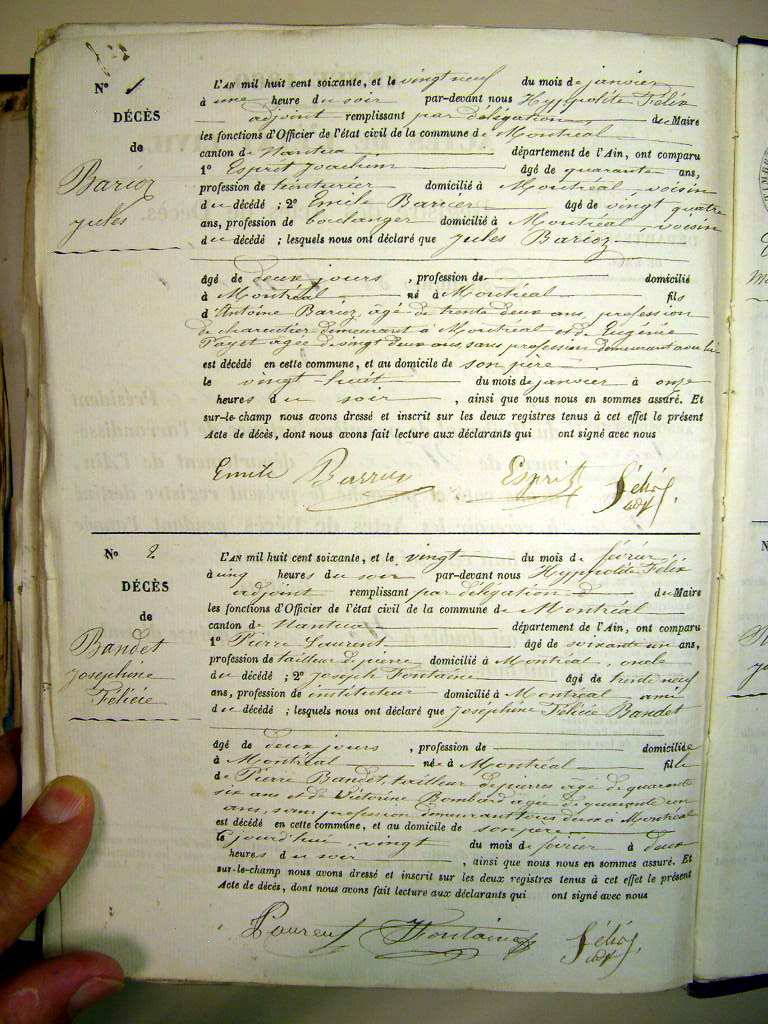 N° 1
DÉCÈS
de
Barioz
Jules
L'AN mil huit cent soixante, et le vingt neuf du mois de janvier
à une heure du soir par-devant nous Hyppolite Félix
adjoint remplissant par délégation du Maire
les fonctions d'Officier de l'état civil de la commune de Montréal
canton de Nantua département de l'Ain, ont comparu
1° Esprit Joachim âgé de quarante ans,
profession de teinturier domicilié à Montréal, voisin
du décédé ; 2° Emile Barrier âgé de vingt quatre
ans, profession de boulanger domicilié à Montréal, voisin
du décédé ; lesquels nous ont déclaré que Jules Barioz
âgé de deux jours, profession de domicilié
à Montréal né à Montréal fils
d'Antoine Barioz, âgé de trente deux ans, profession
de charcutier demeurant à Montréal et de Eugénie
Payet agée de vingt deux ans, sans profession demeurant avec lui
est décédé en cette commune, et au domicile de son père
le vingt-huit du mois de janvier à onze
heures du soir, ainsi que nous nous en sommes assuré. Et
sur-le-champ nous avons dressé et inscrit sur les deux registres tenus à cet effet le présent
Acte de décès, dont nous avons fait lecture aux déclarants qui ont signé avec nous
Emile Esprit Félix
adjt
N° 2
DÉCÈS
de
Bandet
Joséphine
Félicie
L'AN mil huit cent soixante, et le vingt du mois de février
à cinq heures du soir par-devant nous Hyppolite Félix
adjoint remplissant par délégation du Maire
les fonctions d'Officier de l'état civil de la commune de Montréal
canton de Nantua département de l'Ain, ont comparu
1° Pierre Laurent âgé de soixante un ans,
profession de tailleur de pierre domicilié à Montréal, oncle
du décédé ; 2° Joseph Fontaine âgé de trente neuf
ans, profession de instituteur domicilié à Montréal ami
du décédé ; lesquels nous ont déclaré que Joséphine Félicie Bandet
âgé de deux jours, profession de domiciliée
à Montréal née à Montréal fille
de Pierre Bandet, tailleur de pierres âgé de quarante
six ans et de Victorine Bombard agée de quarante un
ans, sans profession demeurant tous deux à Montréal
est décédé en cette commune, et au domicile de son père
le jourd'hui vingt du mois de février à deux
heures du soir, ainsi que nous nous en sommes assuré. Et
sur-le-champ nous avons dressé et inscrit sur les deux registres tenus à cet effet le présent
Acte de décès, dont nous avons fait lecture aux déclarants qui ont signé avec nous
Laurent Fontaine Félix
adjt